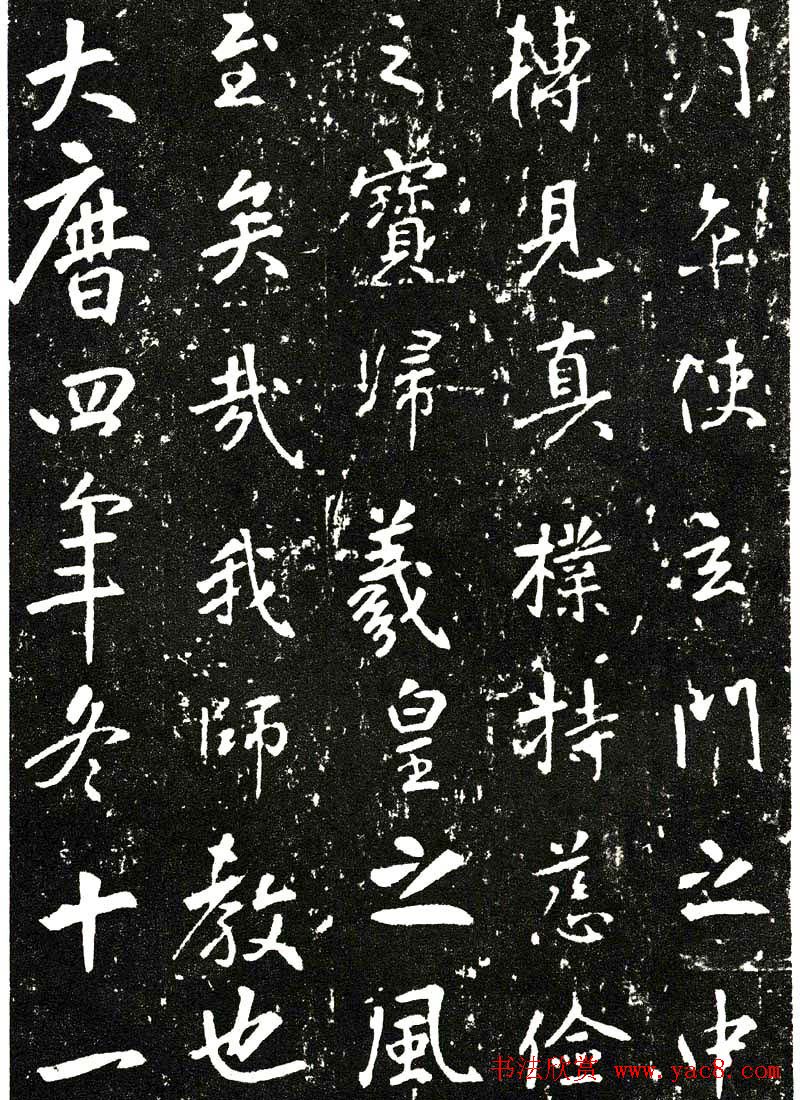 月使玄門之中
搏見真樸特慈儉
之寶歸羲皇之風
至矣哉我師教也
大曆四年冬十一
书法欣赏 www.yac8.com